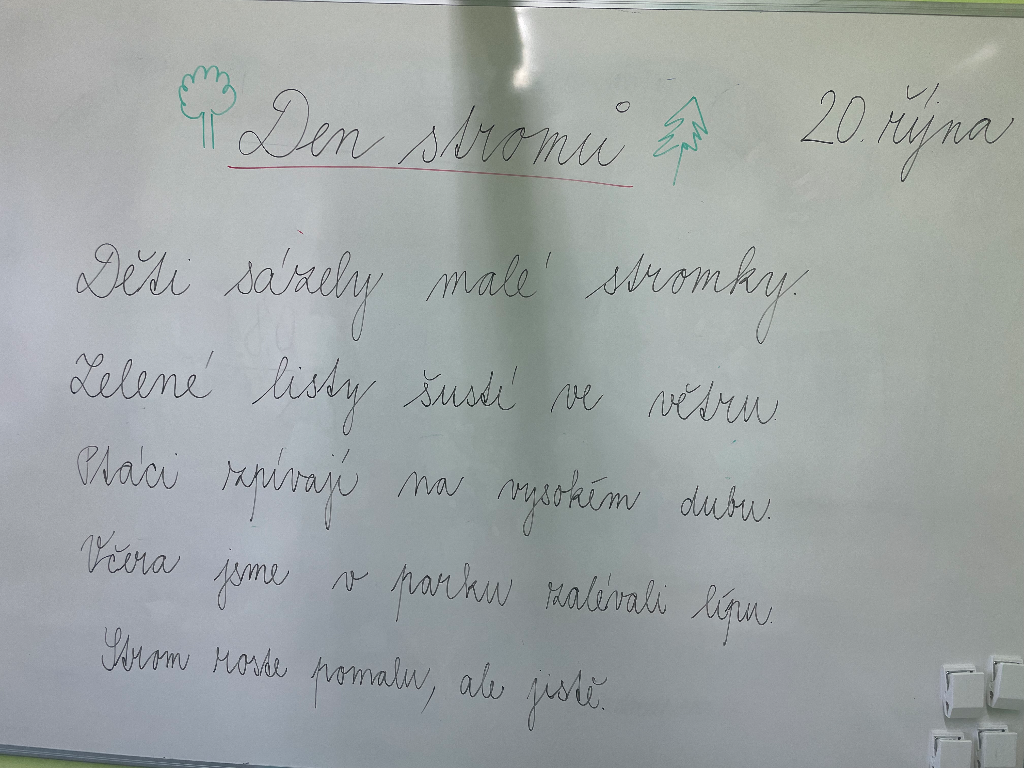 Den stromů
20. října
Děti sázely malé stromky.
Zelené listy šustí ve větru.
Ptáci zpívají na vysokém dubu.
Včera jsme v parku zalévali lípu.
Strom roste pomalu, ale jistě.